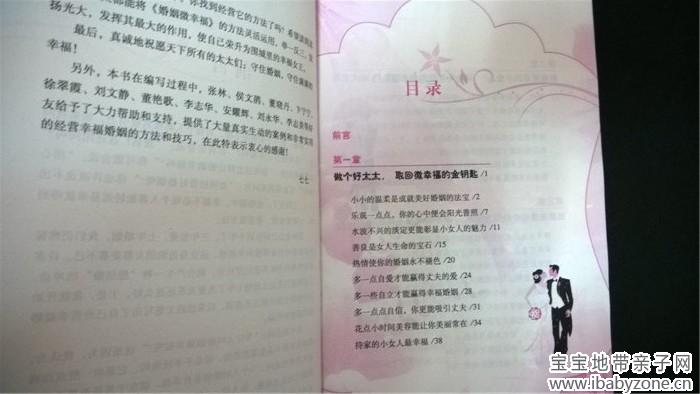 都能将《婚姻微幸福》的方法灵活运用，举一反三，发
扬光大，发挥其最大的作用，使自己荣升为围城里的幸福女王。
最后，真诚地祝愿天下所有的太太们：守住婚姻，守住
幸福！
另外，本书在编写过程中，张林、侯文滔、董晓丹、
徐翠霞、刘文静、董艳歌、李志华、安耀辉、刘永华、李志
友给予了大力帮助和支持，提供了大量真实生动的案例和非常实用
的经营幸福婚姻的方法和技巧，在此特表示衷心的感谢！
七七
目录
前言
第一章
做个好太太，取回微幸福的金钥匙 /1
小小的温柔是成就美好婚姻的法宝 /2
乐观一点点，你的心中便会阳光普照 /7
水波不兴的淡定更能彰显小女人的魅力 /11
善良是女人生命的宝石 /15
热情使你的婚姻永不褪色 /20
多一点自爱才能赢得丈夫的爱 /24
多一些自立才能赢得幸福婚姻 /28
多一点点自信，你更能吸引丈夫 /31
花点小时间美容能让你美丽常在 /34
持家的小女人最幸福 /38
宝宝地带亲子网
www.ibabyzone.cn